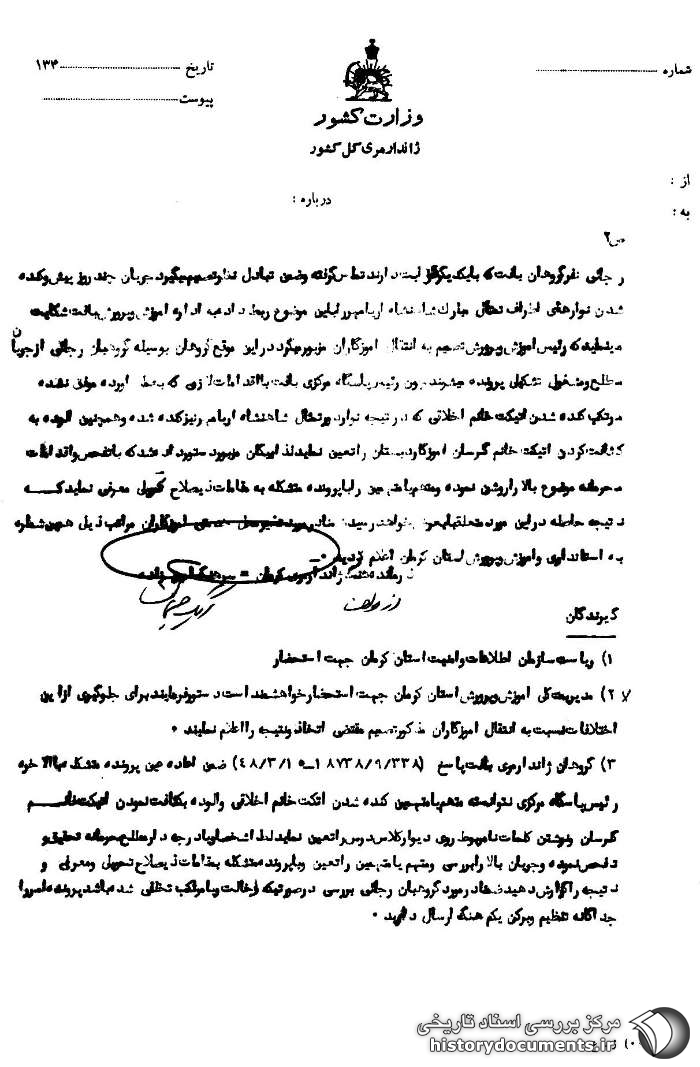 شماره
تاریخ ۱۳۴
پیوست
وزارت کشور
ژاندارمری کل کشور
از :
به :
درباره :
ص۲
رجائی نفر گروهان بافت که بایکدیگر دارند تماس گرفته وضمن تبادل نظر تصمیم میگیرد جریان چند روز پیش وکنده
شدن نوارهای اطراف تمثال مبارک شاهنشاه اریامهر را باین موضوع ربط داده به اداره اموزش وپرورش بافت شکایت
مینماید که رئیس اموزش وپرورش تصمیم به انتقال اموزگاران مزبور میگرد در این موقع گروهان بوسیله گروهبان رجائی از جریان
مطلع ومشغول تشکیل پرونده میشوند چون رئیس پاسگاه مرکزی بافت بااقدامات لازمی که بعمل اورده موفق نشده
مرتکب کنده شدن اتیکت خانم اخلاقی که در نتیجه نوار دور تمثال شاهنشاه اریامهر نیز کنده شده وهمچنین الوده به
کثافت کردن اتیکت خانم گرسان اموزگار دبستان راتعین نماید لذا بیگان مزبور دستور داده شد که باتفحص واقدامات
محرمانه موضوع بالا را روشن نموده ومتهم یامتهمین را باپرونده متشکله به مقامات ذیصلاح تحویل معرفی نماید که
نتیجه حاصله در این مورد متعاقبا بعرض خواهد رسید ضمنا در مورد تغییر محل خدمتی اموزگاران مراتب ذیل همین شماره
به استانداری واموزش وپرورش استان کرمان اعلام گردید .
فرمانده هنگ ژاندارمری کرمان = سرهنگ
از طرف
گیرندگان
۱) ریاست سازمان اطلاعات وامنیت استان کرمان جهت استحضار
۲) مدیریت کل اموزش وپرورش استان کرمان جهت استحضار خواهشمند است دستور فرمایند برای جلوگیری از این
اختلافات نسبت به انتقال اموزگاران مذکور تصمیم مقتضی اتخاذ ونتیجه را اعلام نمایند .
۳) گروهان ژاندارمری بافت پاسخ (۴۸/۳/۱ - ۱۸۷۳۸/۹/۳۳۸) ضمن اعاده عین پرونده متشکله
رئیس پاسگاه مرکزی نتوانسته متهم یامتهمین کنده شدن اتکت خانم اخلاقی والوده بکثافت نمودن اتیکت خانم
گرسان ونوشتن کلمات نامربوط روی دیوار کلاس درس راتعین نماید لذا شخصا وباد رجه دار مطلع محرمانه تحقیق و
تفحص نموده وجریان بالا رابررسی ومتهم یامتهمین راتعین وباپرونده متشکله بمقامات ذیصلاح تحویل ومعرفی و
نتیجه را گزارش دهید ضمنا در مورد گروهبان رجائی بررسی در صورتیکه دخالت ویا مرتکب تخلفی شده باشد پرونده
جداگانه تنظیم وبرکن یکم هنگ ارسال دارید .
مرکز بررسی اسناد تاریخی
historydocuments.ir